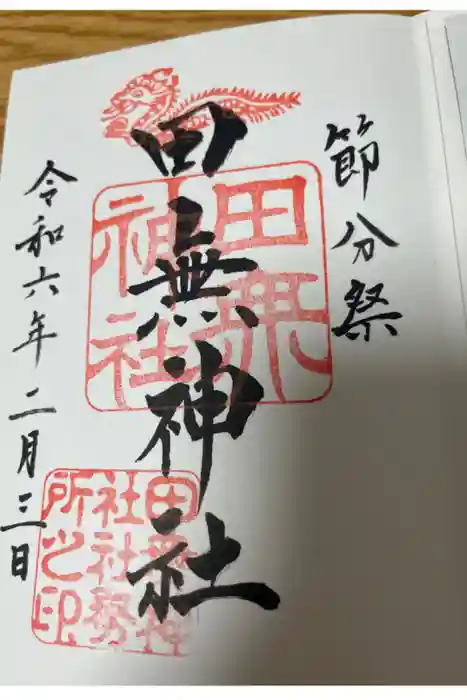 節分祭
田無神社
令和六年二月三日
田無神社
田無神社社務所之印